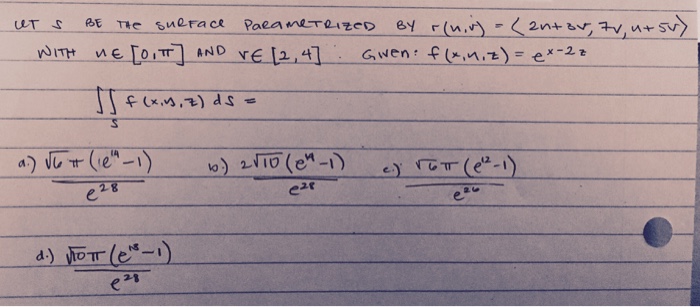 LET S BE THE SURFACE PARAMETRIZED BY r(u,v) = ⟨2u+3v, 7v, u+5v⟩
WITH u ∈ [0,π] AND v ∈ [2,4]. Given: f(x,y,z) = e^{x-2z}
∬_S f(x,y,z) dS =
a.) √6 π (e^{14}-1) / e^{28} b.) 2√10 (e^{14}-1) / e^{28} c.) √6 π (e^{12}-1) / e^{26}
d.) √10 π (e^{13}-1) / e^{28}